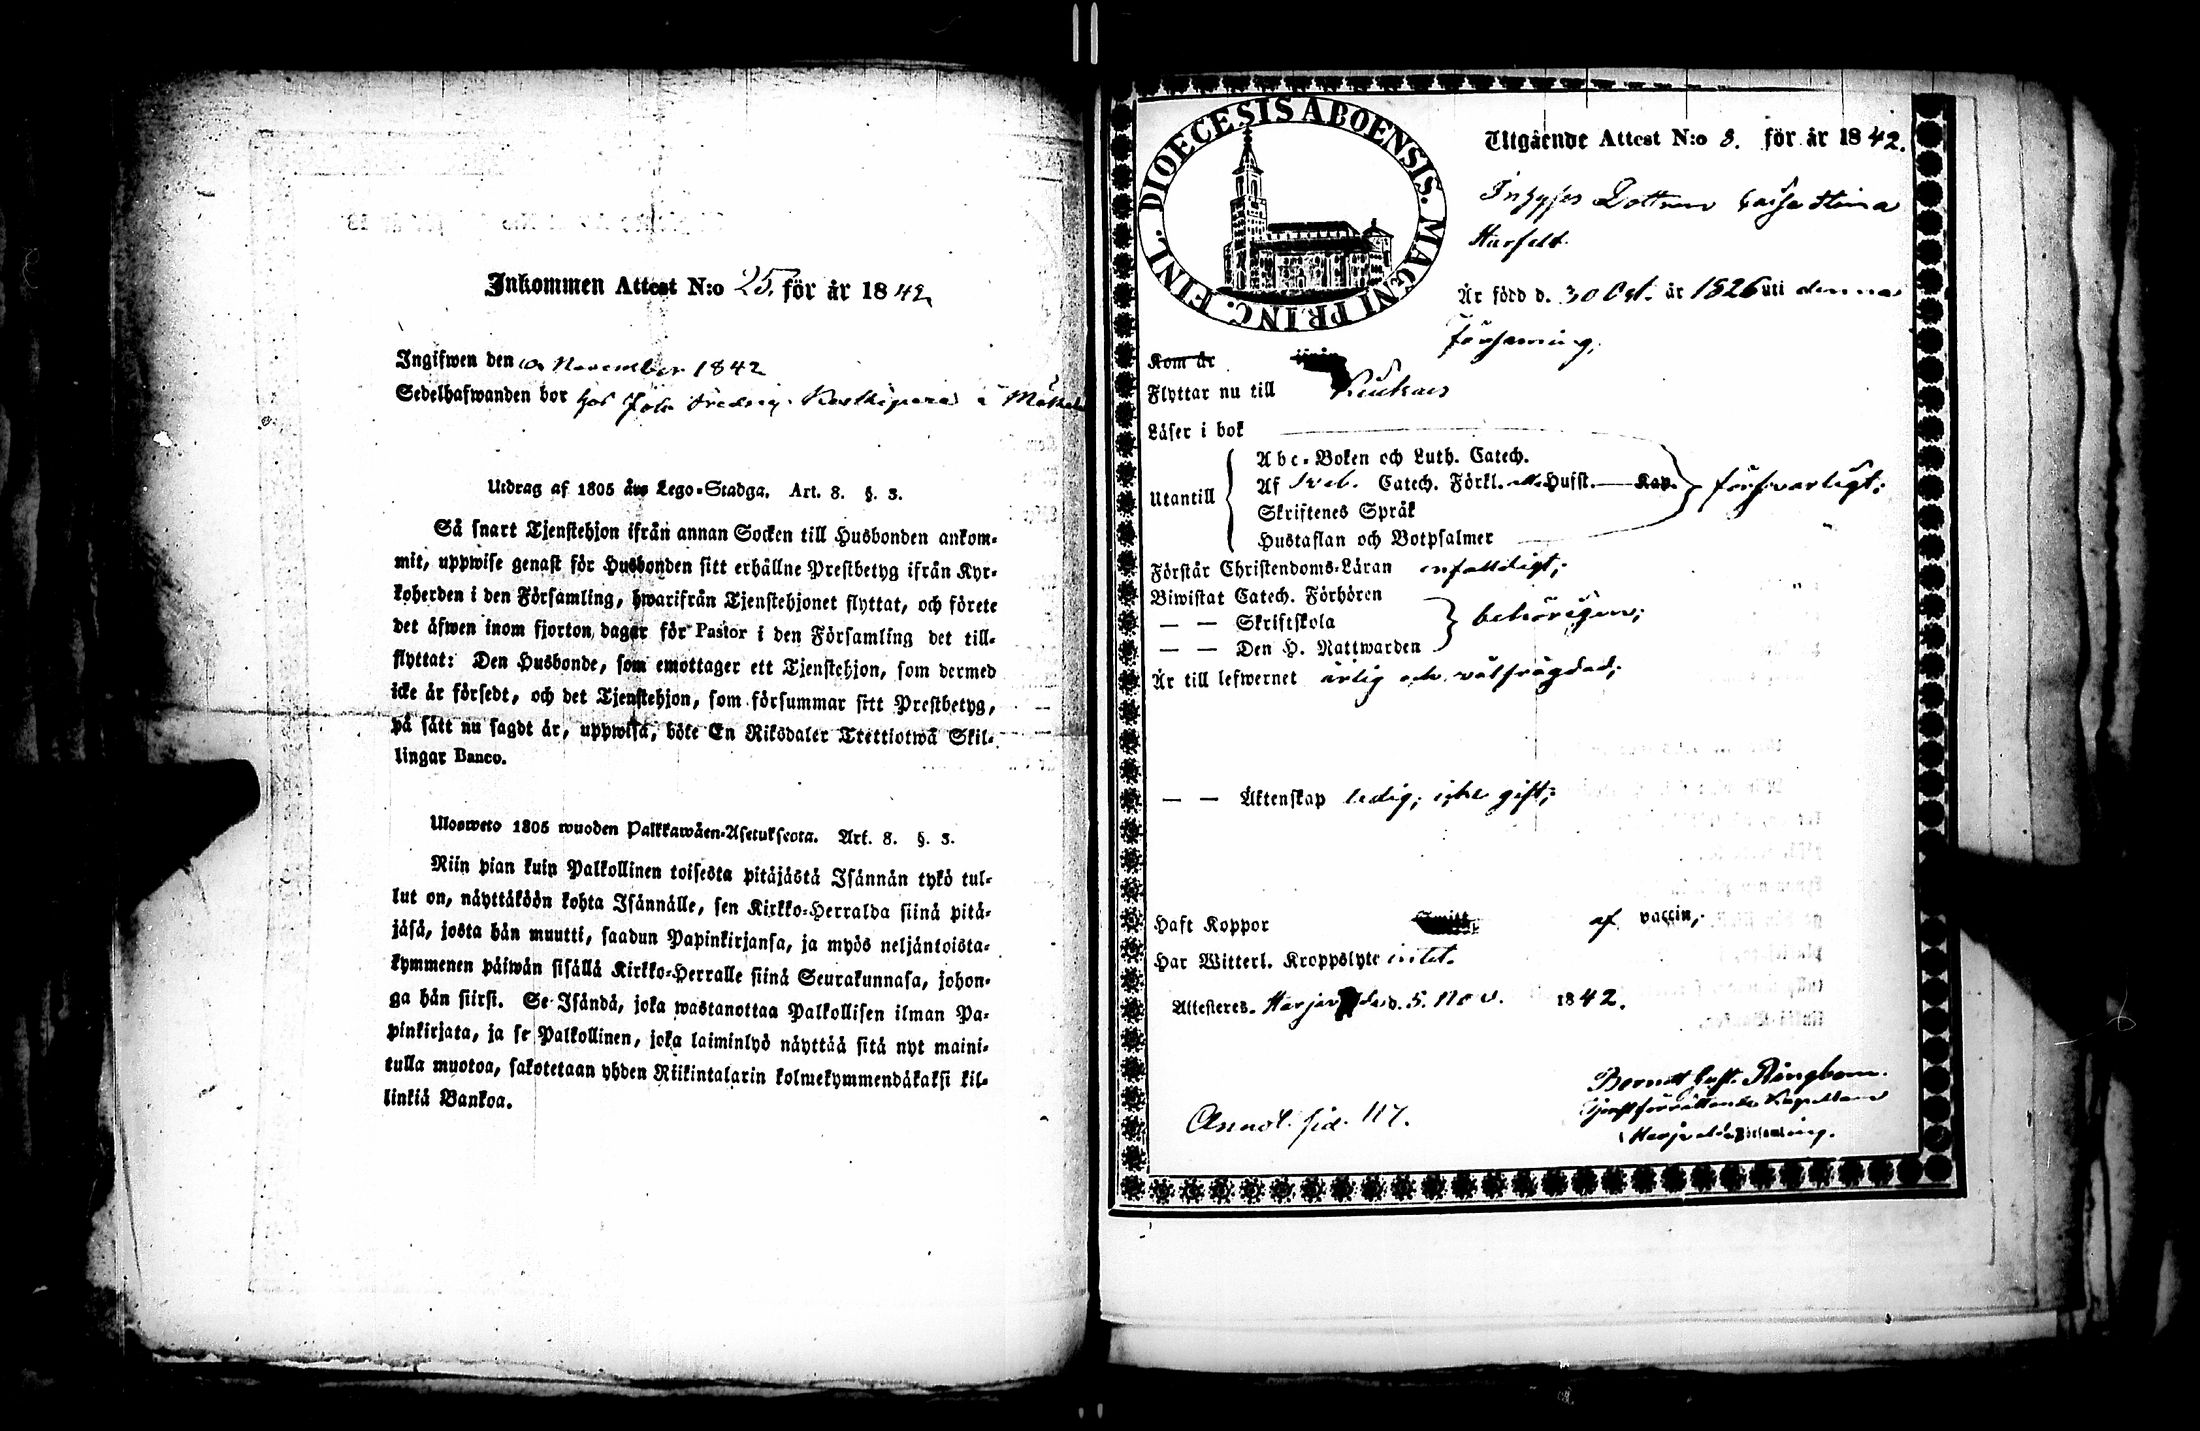 Inkommen Attest N:o 25. för år 1842
Ingifwen den November 1842
Sedelhafwanden bor hos
Utdrag af 1805 års Lego-Stadga. Art. 8. §. 3.
Så snart Tjenstehjon ifrån annan Socken till Husbonden ankom-
mit, uppwise genast för Husbonden sitt erhållne Prestbetyg ifrån Kyr-
koherden i den Församling, hwarifrån Tjenstehjonet flyttat, och förete
det äfwen inom fjorton dagar för Pastor i den Församling det till-
flyttat: Den Husbonde, som emottager ett Tjenstehjon, som dermed
icke är försedt, och det Tjenstehjon, som försummar sitt Prestbetyg,
på sätt nu sagdt är, uppwisa, böte En Riksdaler Trettiotwå Skil-
lingar Banco.
Ulosweto 1805 wuoden Palkkawäen-Asetuksesta. Art. 8. §. 3.
Niin pian kuin Palkollinen toisesta pitäjästä Isännän tykö tul-
lut on, näyttäköön kohta Isännälle, sen Kirkko-Herralda siinä pitä-
jäsä, josta hän muutti, saadun Papinkirjansa, ja myös neljäntoista-
kymmenen päiwän sisällä Kirkko-Herralle siinä Seurakunnasa, johon-
ga hän siirsi. Se Isändä, joka wastanottaa Palkollisen ilman Pa-
pinkirjata, ja se Palkollinen, joka laiminlyö näyttää sitä nyt maini-
tulla muotoa, sakotetaan yhden Riikintalarin kolmekymmendäkaksi kil-
linkiä Bankoa.
DIOECESIS ABOENSIS. MAGNI PRINC. FINL.
Utgående Attest N:o 8. för år 1842.
Dottren Stina
Är född d. 30 Oct. år 1826 uti denna
församling;
Kom år
Flyttar nu till Kiukais
Läser i bok
Abc-Boken och Luth. Catech.
Utantill Af Sveb. Catech. Förkl. Hufst. Kap. försvarligt;
Skriftenes Språk
Hustaflan och Botpsalmer
Förstår Christendoms-Läran enfaldligt;
Biwistat Catech. Förhören
— — Skriftskola behörigen;
— — Den H. Nattwarden
Är till lefwernet ärlig och välfrägdad;
— — Äktenskap ledig, icke gift;
Haft Koppor af vaccin;
Har Witterl. Kroppslyte intet.
Attesteres. d. 5. Nov. 1842.
Berndt Gust. Ringbom.
Tjenstförrättande Kapellan
församling.
Annot. sid. 117.